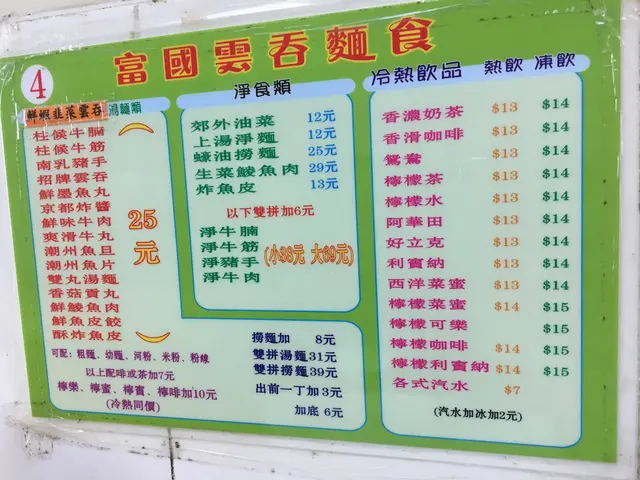 富國雲吞麵食
4
鮮蝦韭菜雲吞 湯麵類
柱侯牛腩
柱侯牛筋
南乳豬手
招牌雲吞
鮮墨魚丸
京都炸醬
鮮味牛肉
爽滑牛丸
潮州魚旦
潮州魚片
雙丸湯麵
香菇貢丸
鮮鯪魚肉
鮮魚皮餃
酥炸魚皮
25元
可配：粗麵、幼麵、河粉、米粉、粉線
以上配啡或茶加7元
檸樂、檸蜜、檸賓、檸啡加10元
(冷熱同價)
淨食類
郊外油菜 12元
上湯淨麵 12元
蠔油撈麵 25元
生菜鯪魚肉 29元
炸魚皮 13元
以下雙拼加6元
淨牛腩
淨牛筋
淨豬手
淨牛肉
(小38元 大69元)
撈麵加 8元
雙拼湯麵31元
雙拼撈麵39元
出前一丁加3元
加底 6元
冷熱飲品 熱飲 凍飲
香濃奶茶 $13 $14
香滑咖啡 $13 $14
鴛鴦 $13 $14
檸檬茶 $13 $14
檸檬水 $13 $14
阿華田 $13 $14
好立克 $13 $14
利賓納 $13 $14
西洋菜蜜 $13 $14
檸檬菜蜜 $14 $15
檸檬可樂 $15
檸檬咖啡 $14 $15
檸檬利賓納 $14 $15
各式汽水 $7
(汽水加冰加2元)